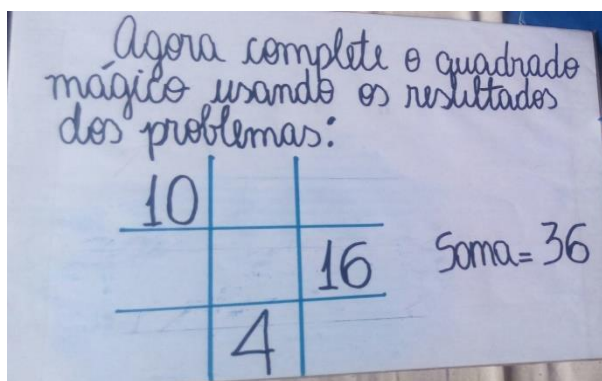 Agora complete o quadrado
mágico usando os resultados
dos problemas:
10
16
Soma= 36
4